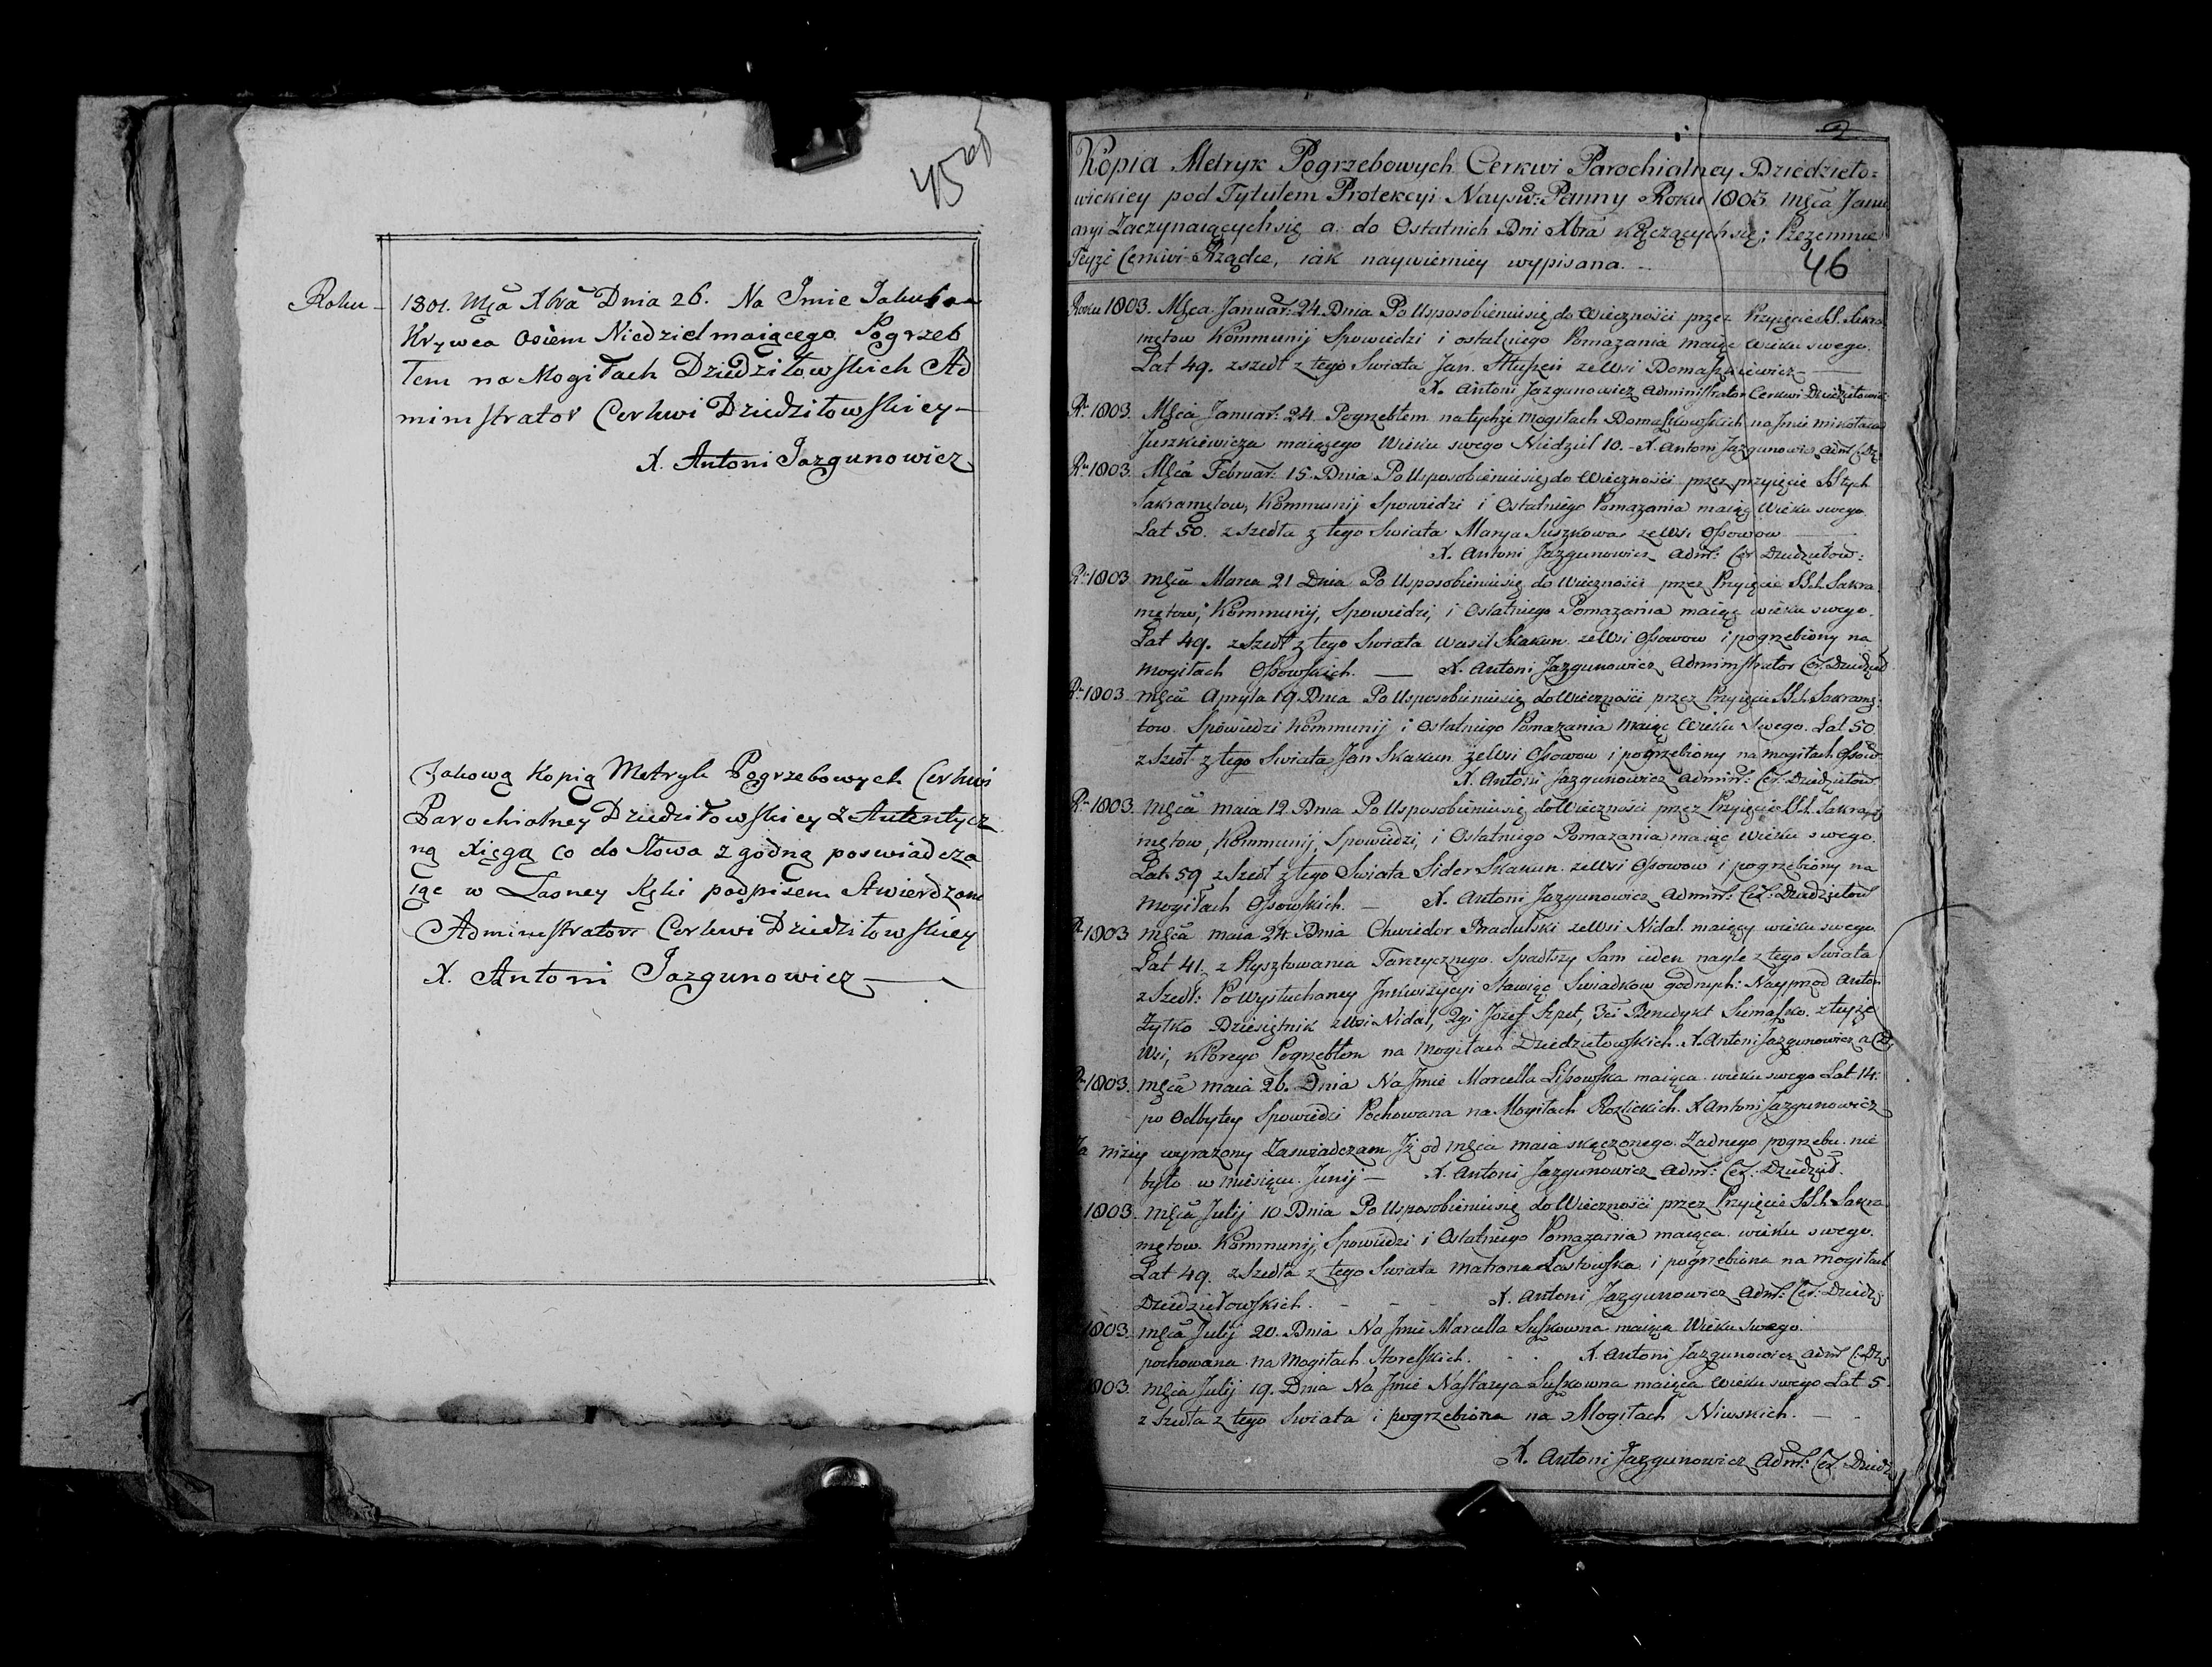 45
Roku 1801. Mca Xbra Dnia 26. Na Jmie Jakuba
Krywca Osiem Niedziel maiącego Pogrzeb
łem na Mogiłach Dziedziłowskich Ad
ministrator Cerkwi Dziedziłowskiey
X. Antoni Jazgunowicz
Jakową Kopią Metryk Pogrzebowych Cerkwi
Parochialney Dziedziłowskiey z Autentycz
ną Xięgą co do Słowa zgodną poswiadcza
iąc w Łasney Ręki podpisem Stwierdzam
Administrator Cerkwi Dziedziłowskiey
X. Antoni Jazgunowicz
2
Kopia Metryk Pogrzebowych Cerkwi Parochialney Dziedzieło=
wickiey pod Tytułem Protekcyi Nayśw: Panny Roku 1803 Męca Janu
aryi Zaczynaiących się a do Ostatnich Dni Xbra kączących się; Przezemnie
Teyże Cerkwi Rządce, iak naywierniey wypisana.
46
Roku 1803. Męca Januar: 24. Dnia Po Usposobieniu się do Wieczności przez Przyięcie SS. Sakra
mętow Kommunij Spowiedzi i ostatniego Pomazania maiąc wieku swego
Lat 49. zszedł z tego Swiata Jan ze Wsi Domaszkiewicz
X. Antoni Jazgunowicz Administrator Cerkwi
Ru 1803. Męca Januar: 24. Pogrzebłem na tychże Mogiłach Domaszkowskich na Jmie Mikołaia
Juszkiewicza maiącego Wieku swego Niedziel 10. X. Antoni Jazgunowicz
Ru 1803. Męca Februar: 15. Dnia Po Usposobieniu się do Wieczności przez przyięcie SStych
Sakramętow, Kommunij Spowiedzi i Ostatniego Pomazania maiąc Wieku swego
Lat 50. zszedła z tego Swiata Marya Suszkowa ze Wsi Osowow
X. Antoni Jazgunowicz Adm: Cer Dziedziełow:
Ru 1803 Męca Marca 21 Dnia Po Usposobieniu się do Wieczności przez Przyięcie SSt. Sakra
mętow, Kommunij, Spowiedzi, i Ostatniego Pomazania maiąc wieku swego.
Lat 49. zszedł z tego Swiata Wasil Skakun ze Wsi Osowow i pogrzebiony na
mogiłach Osowskich. X. Antoni Jazgunowicz Administrator Cer.
Ru 1803 Męca Apryla 19. Dnia Po Usposobieniu się do Wieczności przez Przyięcie SSt. Sakramę
tow. Spowiedzi Kommunij i Ostatniego Pomazania maiąc Wieku swego. Lat 50
zszedł z tego Swiata Jan Skakun ze Wsi Osowow i pogrzebiony na mogiłach Osow
X. Antoni Jazgunowicz Admin: Cer. Dziedziełow
Ru 1803. Męca Maia 12. Dnia Po Usposobieniu się do Wieczności przez Przyięcie SSt. Sakra
mętow, Kommunij, Spowiedzi, i Ostatniego Pomazania maiąc Wieku swego.
Lat 59 zszedł z tego Swiata Sider Skakun ze Wsi Osowow i pogrzebiony na
Mogiłach Osowskich. X. Antoni Jazgunowicz Admin: Cer: Dziedziełow
Ru 1803 Męca Maia 24. Dnia Chwiedor Bradulski ze Wsi Nidal maiący wieku swego
Lat 41. z Ryształowania Tarzycznego Spadłszy Sam ieden nagle z tego Swiata
zszedł: Po Wysłuchaney Jnkwizycyi Stawiąc Swiadkow godnych: Nayprzod Anton
Zytko Dziesiętnik z Wsi Nidal, 2gi Jozef Szpet, 3ci Benedykt z teyże
Wsi, ktorego Pogrzebłem na Mogiłach Dziedziełowskich. X. Antoni Jazgunowicz
Ru 1803. Męca Maia 26. Dnia Na Jmie Marcella Lisowska maiąca wieku swego Lat 14:
po Odbytey Spowiedzi Pochowana na Mogiłach Rozlickich. X Antoni Jazgunowicz
Ja niżey wyrażony Zaswiadczam Jż od Męca Maia skączonego Zadnego pogrzebu nie
było w miesiącu Junij X. Antoni Jazgunowicz Adm: Cer.
1803. Męca Julij 10 Dnia Po Usposobieniu się do Wieczności przez Przyięcie SSt. Sakra
mętow. Kommunij, Spowiedzi i Ostatniego Pomazania maiąca wieku swego.
Lat 49. zszedła z tego Swiata Matrona Łastowska i pogrzebiona na mogiłach
Dziedziełowskich. X. Antoni Jazgunowicz Adm: Cer: Dziedz:
1803. Męca Julij 20. Dnia Na Jmie Marcella Suszkowna maiąca Wieku Swego
pochowana na Mogiłach Horelskich. X. Antoni Jazgunowicz Adm
1803. Męca Julij 19. Dnia Na Jmie Nastazya Suszkowna maiąca wieku swego Lat 5
zszedła z tego Swiata i pogrzebiona na Mogiłach Niwskich.
X. Antoni Jazgunowicz Adm: Cer. Dziedz